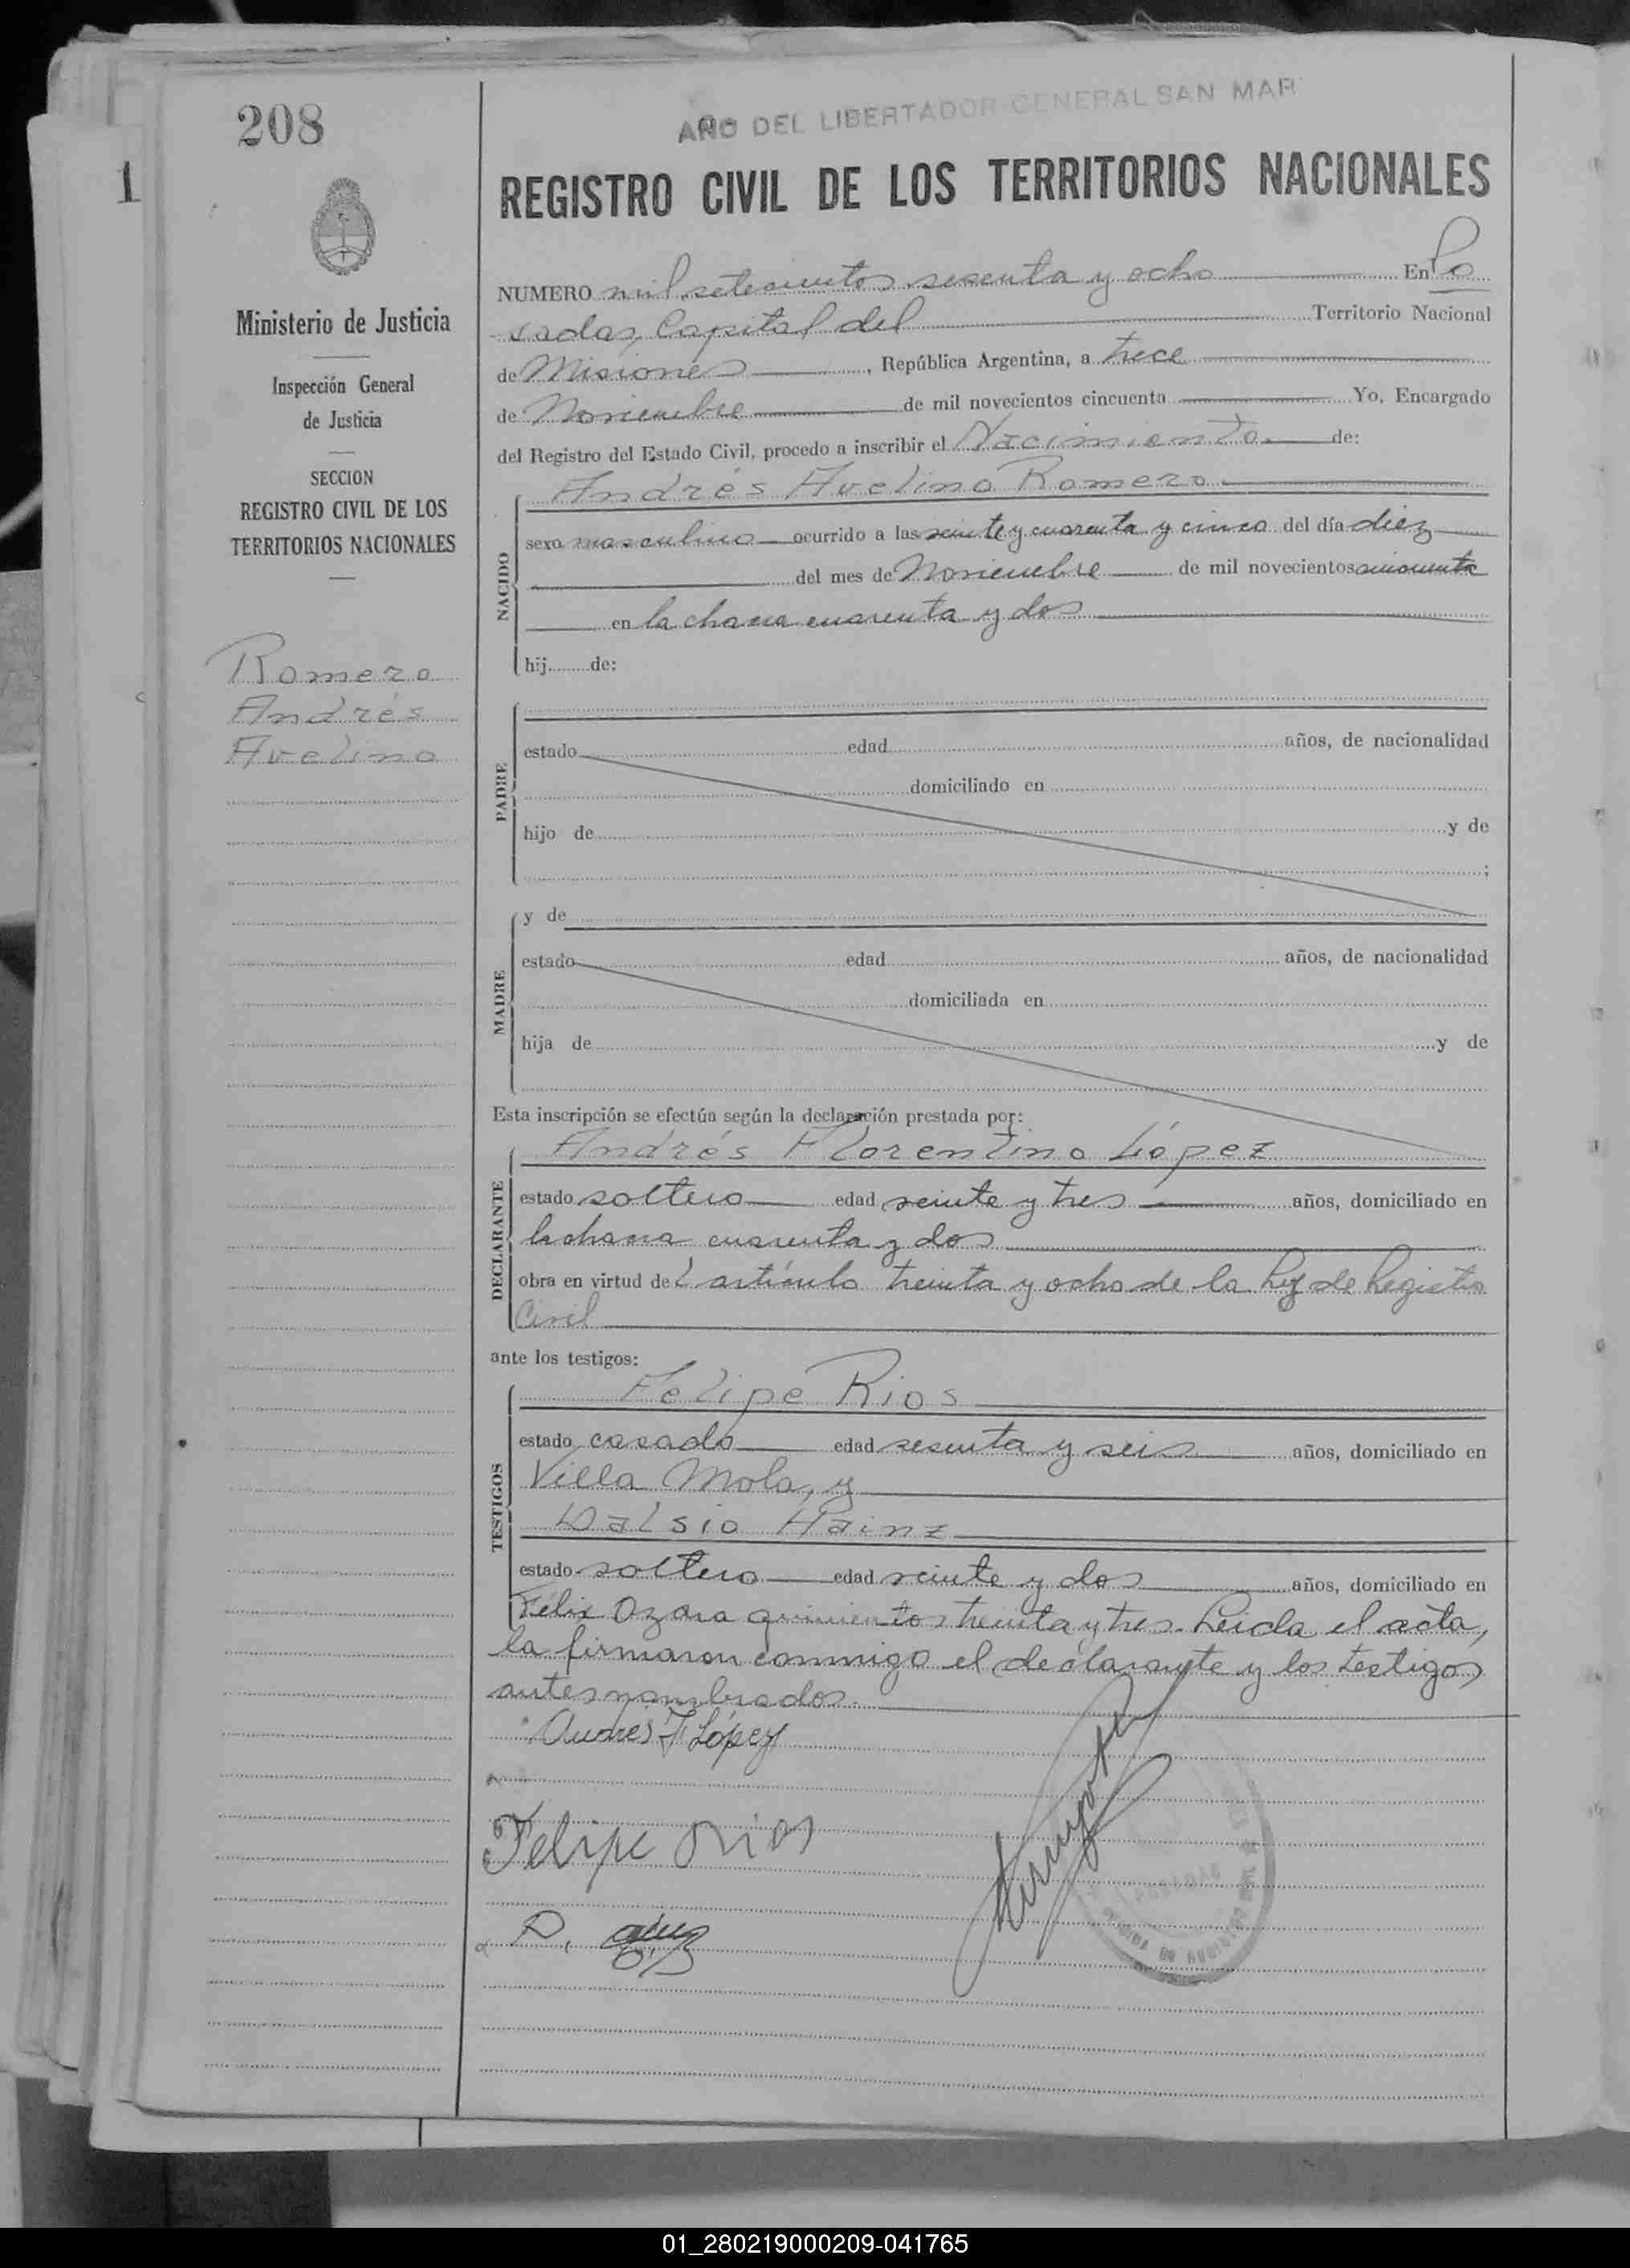 208
AÑO DEL LIBERTADOR GENERAL SAN MAR
REGISTRO CIVIL DE LOS TERRITORIOS NACIONALES
1
Ministerio de Justicia
Inspección General
de Justicia
SECCION
REGISTRO CIVIL DE LOS
TERRITORIOS NACIONALES
Romero
Andrés
Avelino
NUMERO mil setecientos sesenta y ocho En Po
sadas, Capital del Territorio Nacional
de Misiones, República Argentina, a trece
de Noviembre de mil novecientos cincuenta Yo, Encargado
del Registro del Estado Civil, procedo a inscribir el Nacimiento de:
NACIDO
Andrés Avelino Romero
sexo masculino ocurrido a las veinte y cuarenta y cinco del día diez
del mes de Noviembre de mil novecientos cincuenta
en la chacra cuarenta y dos
hij de:
PADRE
estado edad años, de nacionalidad
domiciliado en
hijo de y de
;
MADRE
y de
estado edad años, de nacionalidad
domiciliada en
hija de y de
Esta inscripción se efectúa según la declaración prestada por:
DECLARANTE
Andrés Florentino López
estado soltero edad veinte y tres años, domiciliado en
la chacra cuarenta y dos
obra en virtud del artículo treinta y ocho de la Ley de Registro
Civil
ante los testigos:
TESTIGOS
Felipe Rios
estado casado edad sesenta y seis años, domiciliado en
Villa Mola, y
Dalsio Hainz
estado soltero edad veinte y dos años, domiciliado en
Félix Azara quinientos treinta y tres. Leida el acta,
la firmaron conmigo el declarante y los testigos
antes nombrados.
Andrés F López
Felipe Rios
D.
POSADAS
01_280219000209-041765